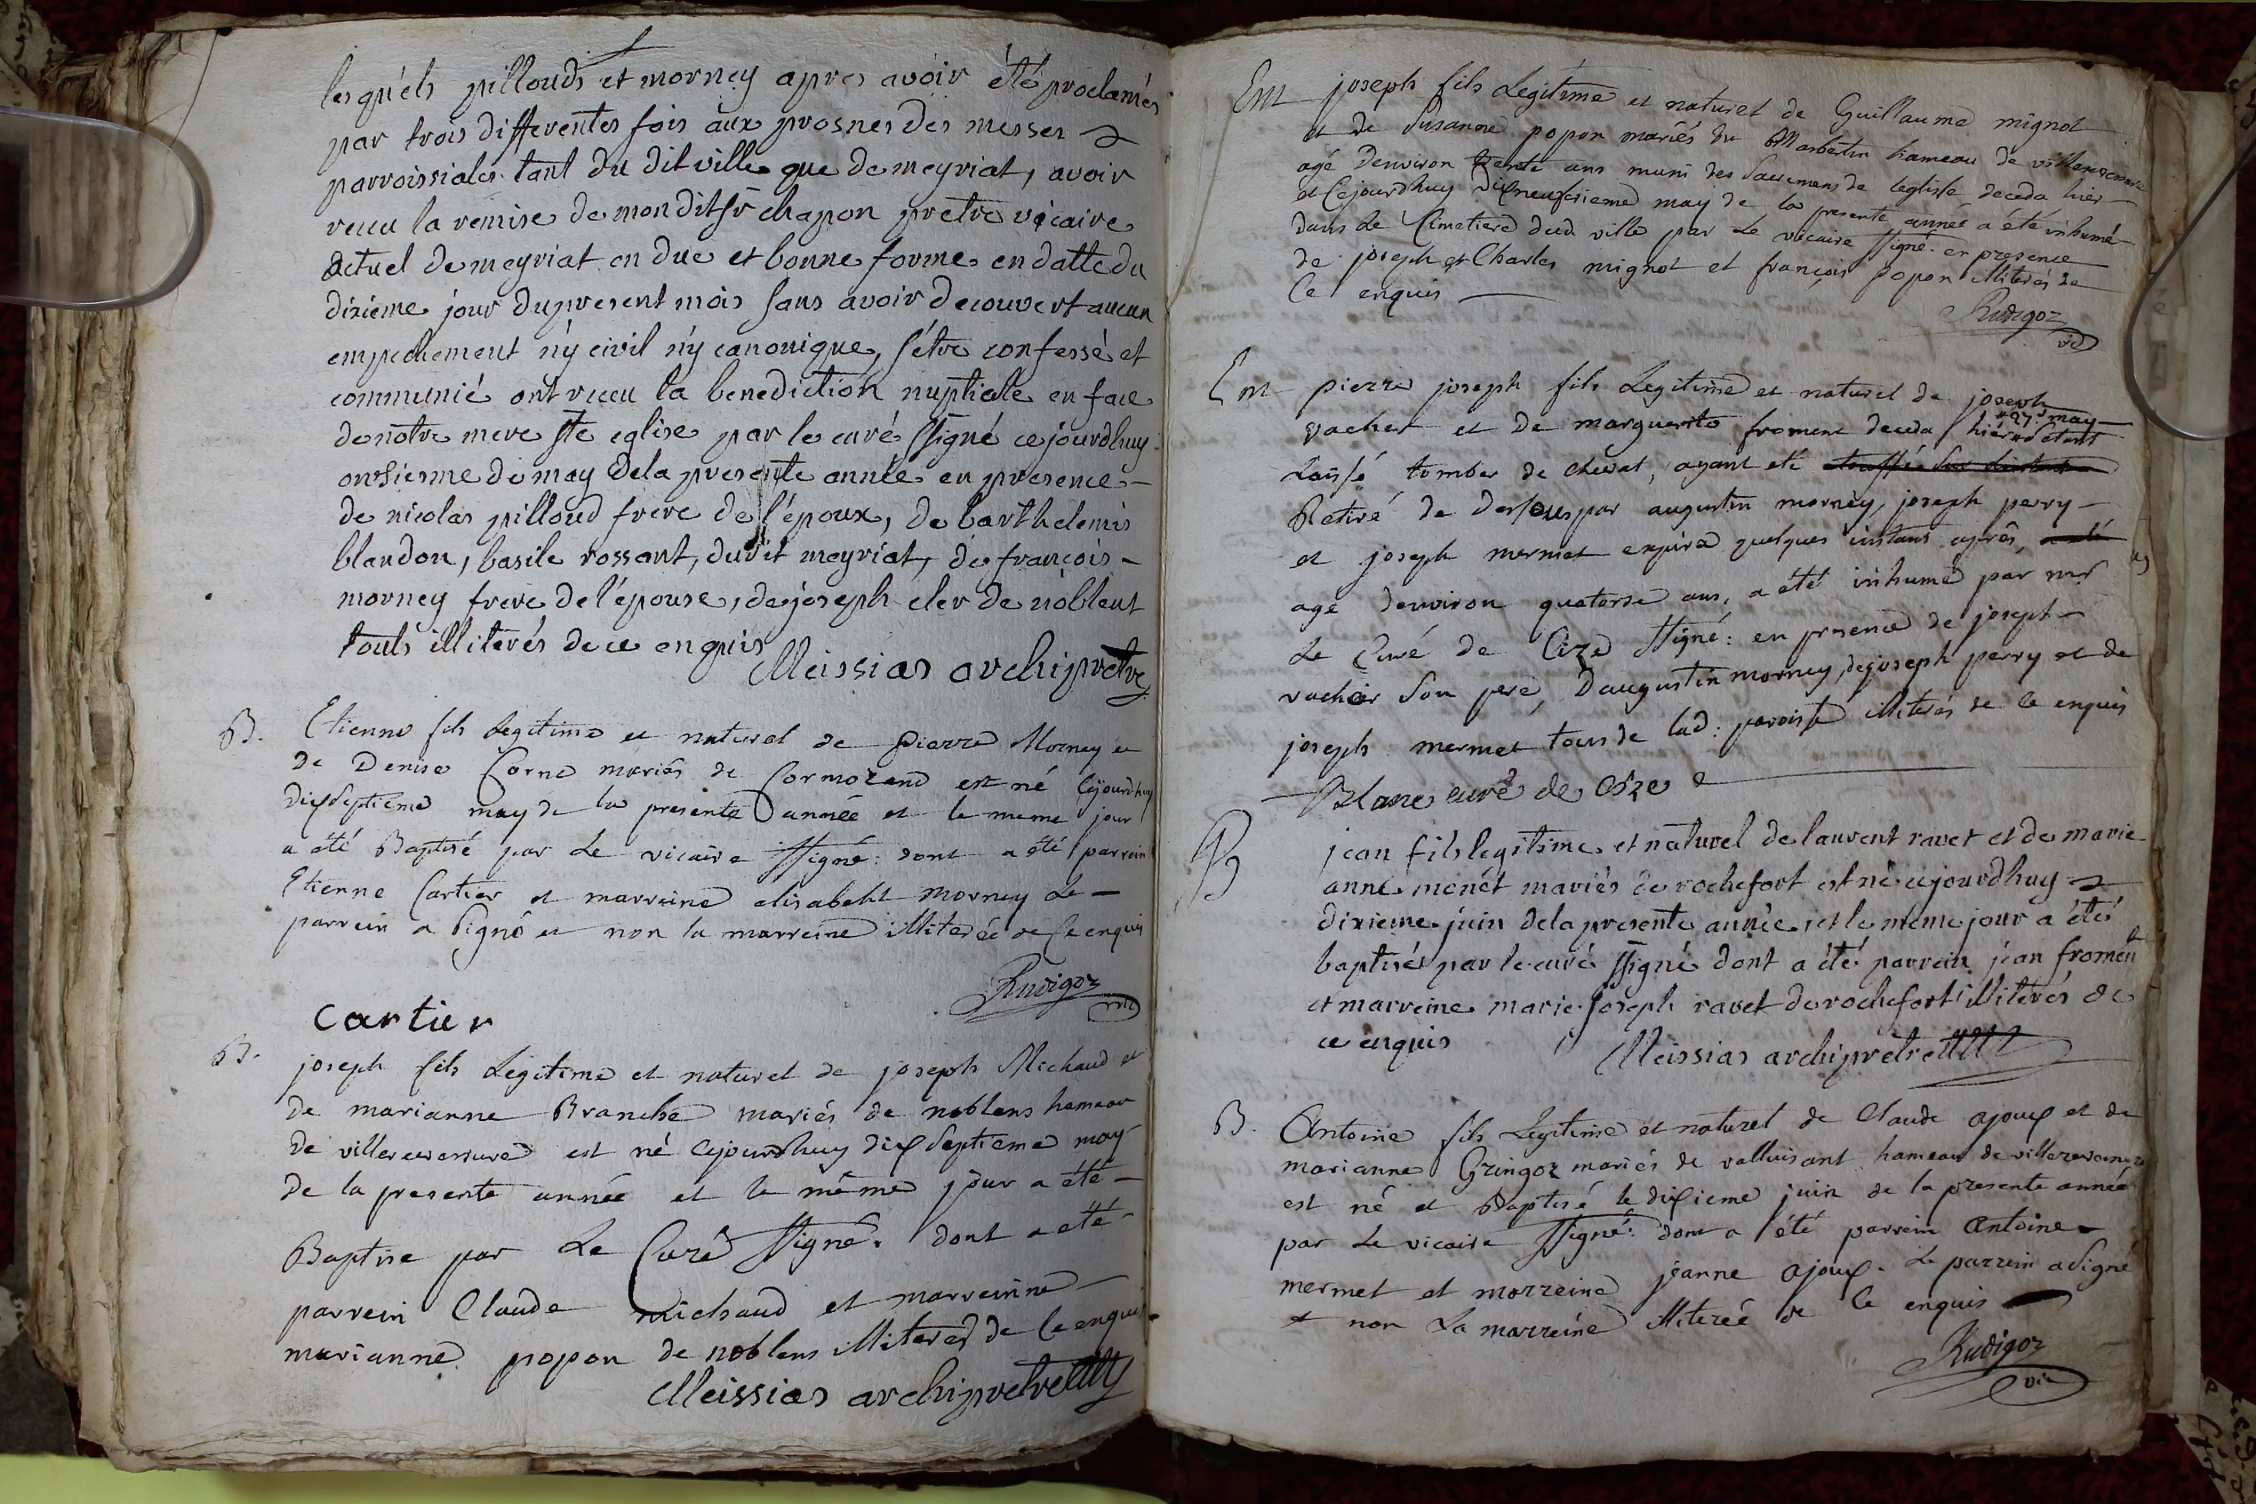 lesquels pillouds et morney apres avoir été proclamés
par trois differentes fois aux prosnes des messes
parroissiales tant du dit ville que de meyriat, avoir
receu la remise de mondit sr chapon pretre vicaire
actuel de meyriat en due et bonne forme en datte du
dixieme jour du present mois sans avoir decouvert aucun
empechement n'y civil n'y canonique, s'étre confessé et
communié ont receu la benediction nuptiale en face
de nôtre mere ste eglise par le curé ssigné ce jourdhuy
onzsieme de may dela presente année en presence
de nicolas pilloud frere de l'époux, de barthelemis
blandon, basile rossant, dudit meyriat, de françois
morney frere de l'épouse, de joseph cler de noblent
touts illiterés de ce enquis
Meissias archipretre
B. Etienne fils legitime et naturel de pierre Morney et
de Denise Corne mariés de Cormorand est né Cejourdhuy
dixseptieme may de la presente année et le meme jour
a été Baptisé par Le vicaire ssigné: dont a été parrein
Etienne Cartier et marreine elisabeth morney Le
parrein a signé et non la marreine illiterée de Ce enquis
Rudigoz
vic
cartier
B. joseph fils Legitime et naturel de joseph Michaud et
de marianne Branche mariés de noblens hameau
de villereversure est né Cejourdhuy dixseptieme may
de la presente année et le même jour a été
Baptise par Le Curé ssigné. dont a eté
parrein Claude michaud et marreinne
marianne popon de noblens illiteres de Ce enquis
Meissias archipretre
Em joseph fils Legitime et naturel de Guillaume mignot
et de Susanne popon mariés du hameau de villereversure
agé denviron trente ans muni des Sacremens de leglise deceda hier
et Cejourdhuy dixneufsieme may de la presente année a été inhumé
dans Le Cimetiere dud ville par Le vicaire ssigné. en presence
de joseph et Charles mignot et françois popon illiterés de
Ce enquis
Rudigoz
vic
Em pierre joseph fils Legitime et naturel de joseph
27 may
vacher et de marguerite froment deceda hier s'etant
Laissé tomber de cheval, ayant été
Retiré de dessous par augustin morney, joseph perry
et joseph mermet expira quelques instans après,
agé denviron quatorse ans, a été inhumé par mr
Le Curé de Cize ssigné: en presence de joseph
vacher son pere, Daugustin morney, de joseph perry et de
joseph mermet tous de lad: paroisse illiterés de ce enquis
Blanc curé de Cize
B jean fils legitime et naturel de laurent ravet et de marie
anne monét mariés de rochefort est né cejourdhuy
dixieme juin dela presente année et le même jour a été
baptisé par le curé ssigné dont a été parrein jean froment
et marreine marie joseph ravet de rochefort illiterés de
ce enquis
Meissias archipretre
B. Antoine fils Legitime et naturel de Claude ajoux et de
marianne Gringoz mariés de valluisant hameau de villereversure
est né et Baptisé le dixieme juin de la presente année
par Le vicaire ssigné: dont a été parrein Antoine
mermet et marreine jeanne ajoux. Le parrein a signé
et non La marreine illiterée de Ce enquis
Rudigoz
vic